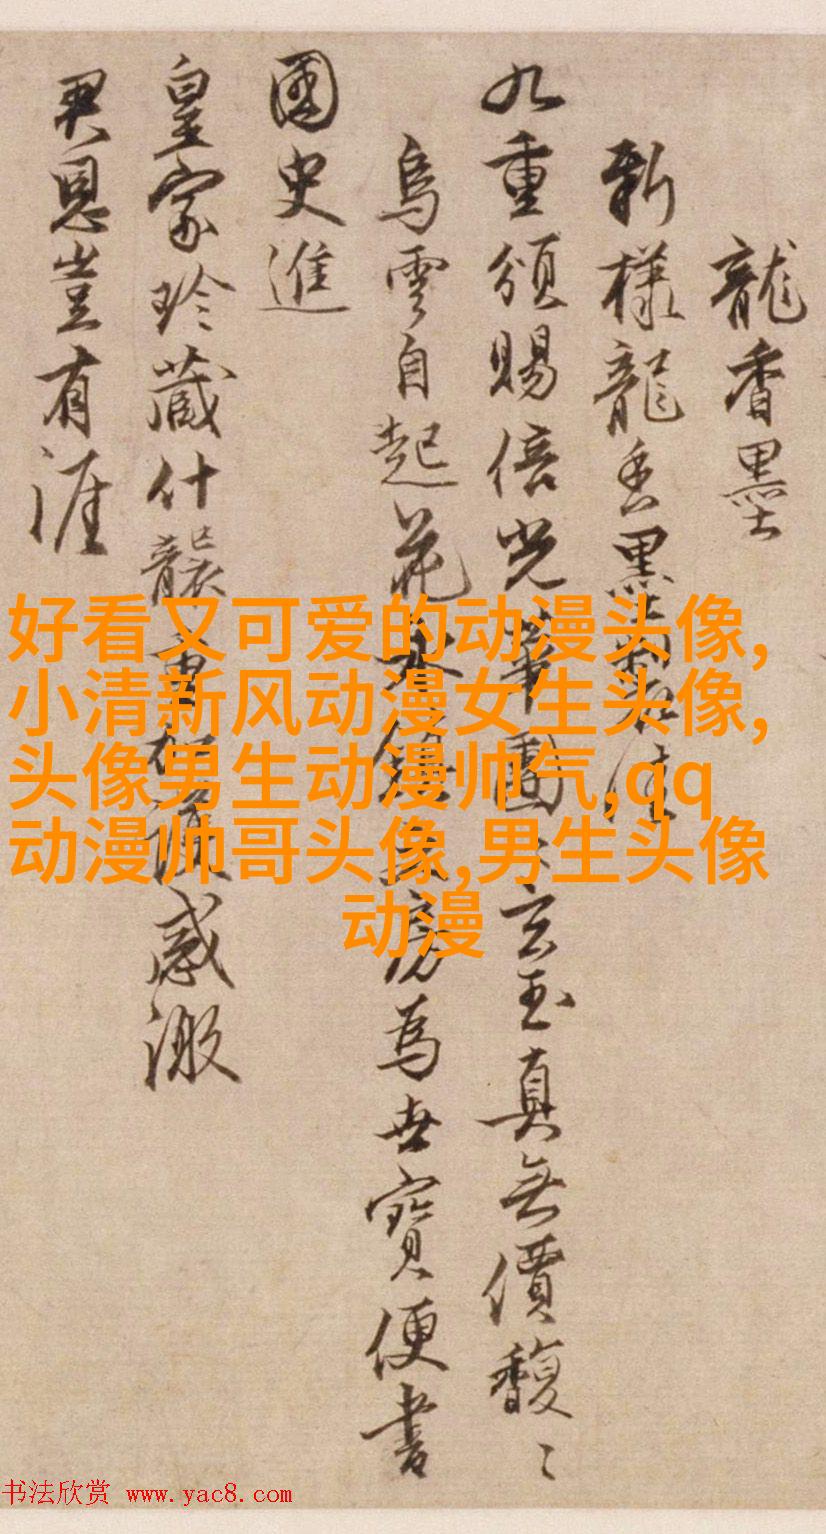 龍香墨
新樣龍香墨製佳
九重頒賜倍光華團玄玉真無價馥〻
烏雲自起花房為世寶便書
國史進
皇家珍藏什襲重感激
君恩豈有涯
好看又可爱的动漫头像,
小清新风动漫女生头像,
头像男生动漫帅气,qq
动漫帅哥头像,男生头像
动漫
书法欣赏 www.yac8.com